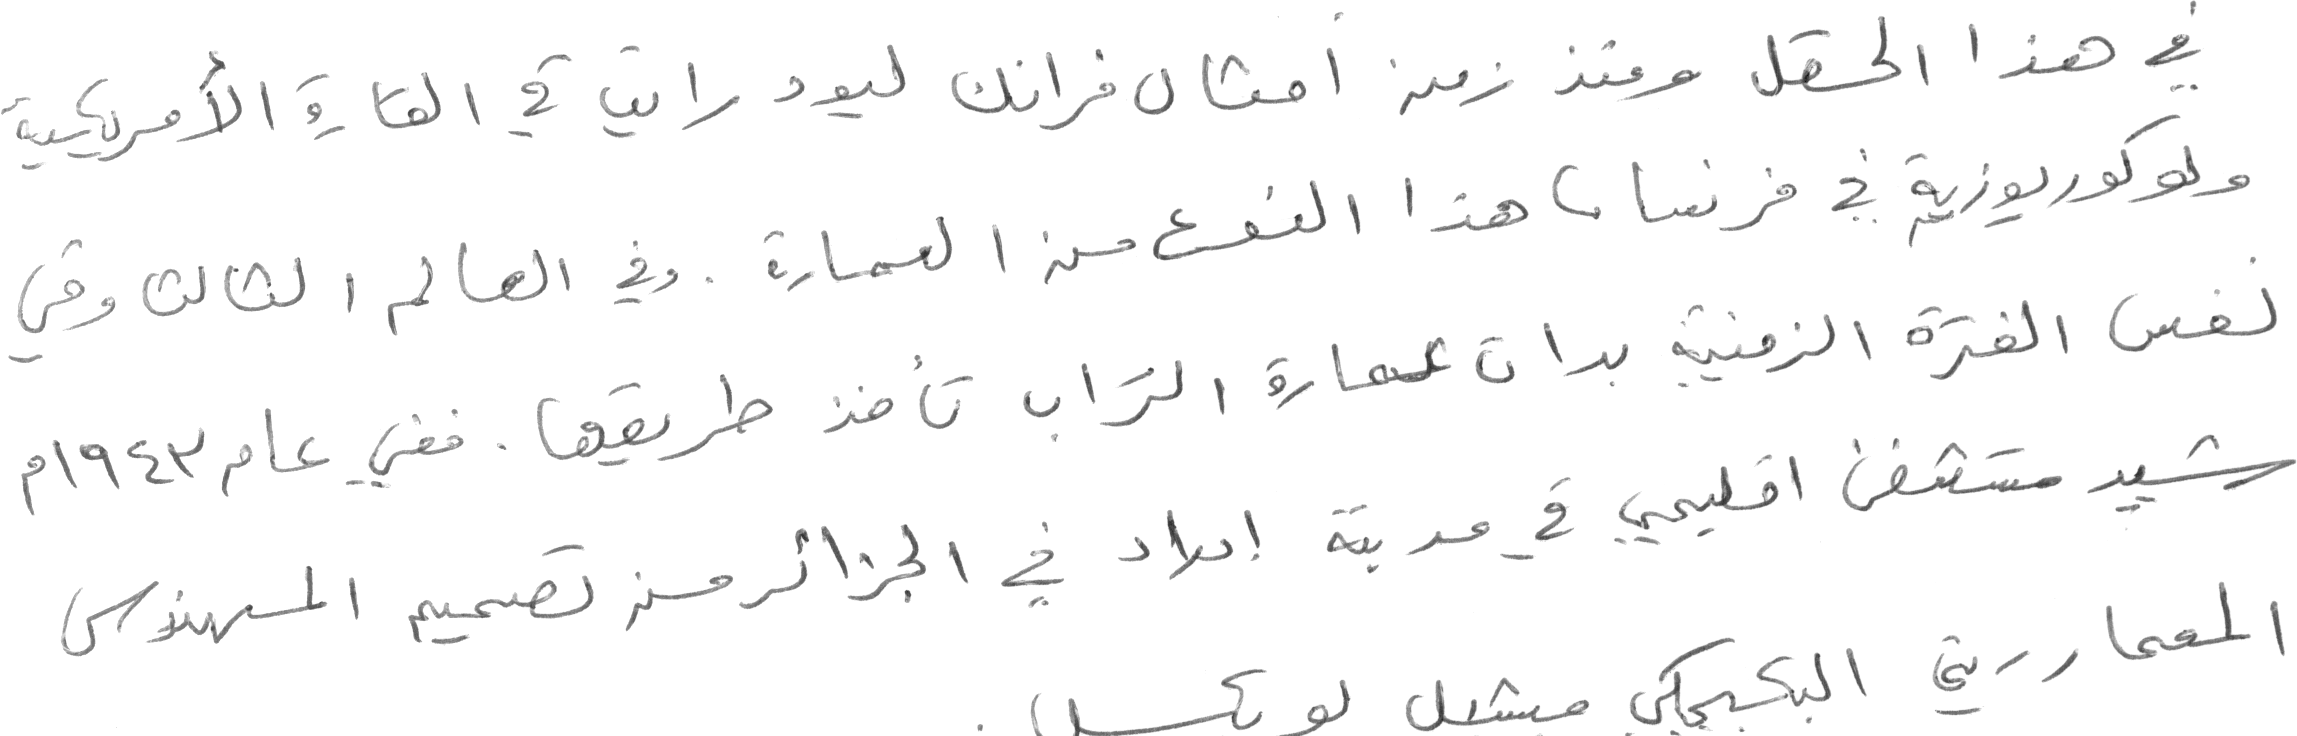 في هذا الحقل ومنذ زمن أمثال فرانك ليود رايت في القارة الأمريكية
ولوكوربوزيه في فرنسا هذا النوع من العمارة . وفي العالم الثالث وفي
نفس الفترة الزمنية بدات عمارة التراب تأخذ طريقها . ففي عام ١٩٤٣م
شيد مستشفى اقليمي في مدينة ادرار في الجزائر من تصميم المهندس
المعماري البلجيكي ميشيل